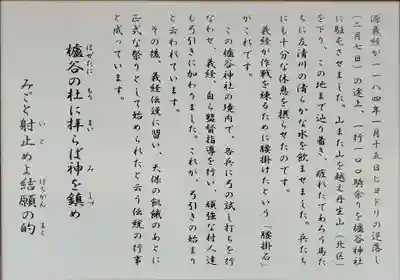 源義経が一一八四年一月十五日ヒヨドリの逆落し
(二月七日)の途上、一行一〇〇騎余りを櫨谷神社
に駐屯させました。山また山を越え丹生山(北区)
を下り、この地まで辿り着き、疲れたであろう馬た
ちに友清川の清らかな水を飲ませました。兵たち
にも十分な休息を摂らせたのです。
義経が作戦を練るために腰掛けたという「腰掛石」
がこれです。
この櫨谷神社の境内で、各兵に弓の試し打ちを行
なわせ、義経、自ら監督指導を行い、頑強な村人達
も弓引きに加わりました。これが、弓引きの始まり
と云われています。
その後、義経伝説に習い、天保の飢餓のあとに
正式な祭りとして始められたと云う伝統の行事
と成っています。
はぜたに もり まい み しづ
櫨谷の杜に拝らば神を鎮め
い と けちがん まと
みごと射止めよ結願の的